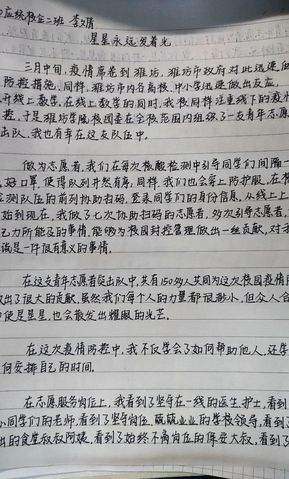 应统校企二班 李文倩
星星永远发着光
三月中旬,疫情席卷到潍坊,潍坊市政府对此迅速做
防控措施,同样,潍坊市内各高校、中小学迅速做出反应,
开线上教学,在线上教学的同时,我校同样注重线下的疫情
控,于是潍坊学院校团委在全校范围内组织了一支青年志愿
击队,我也有幸在这支队伍中。
做为志愿者,我们在每次核酸检测中引导同学们间隔一
好口罩,使得队列井然有序,同样,我们也会穿上防护服,在核
检测队伍的前列协助扫码,登录同学们的身份信息,从线上上
始到现在,我做了七次协助扫码的志愿者,多次引导志愿者,
己力所能及的事情,能够为校园封控管理做出一丝贡献,对我
说是一件很有意义的事情。
在这支青年志愿者突击队中,共有150多人共同为这次校园疫情
出了很大的贡献,虽然我们每个人的力量都很渺小,但众人合
使是星星,也会散发出耀眼的光芒。
在这次疫情防控中,我不仅学会了如何帮助他人,还学
何安排自己的时间。
在志愿服务岗位上,我看到了坚守在一线的医生护士,看到
同学们的老师,看到了坚守岗位、兢兢业业的学校领导,看到
出的食堂叔叔阿姨,看到了始终不离岗位的保安大叔,看到了